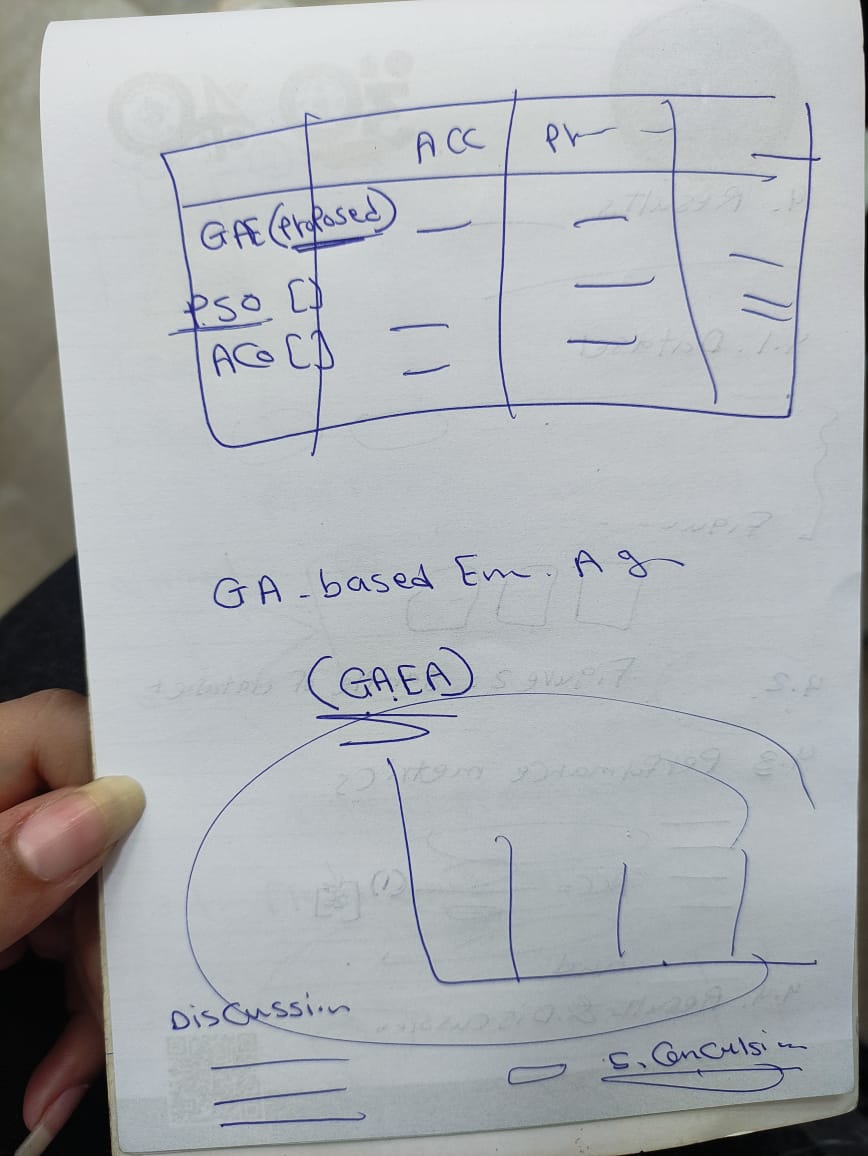 ACC Pr
GAE (proposed)
PSO []
ACO []
GA-based Em. Ag
(GAEA)
Discussion
5. Conculsion